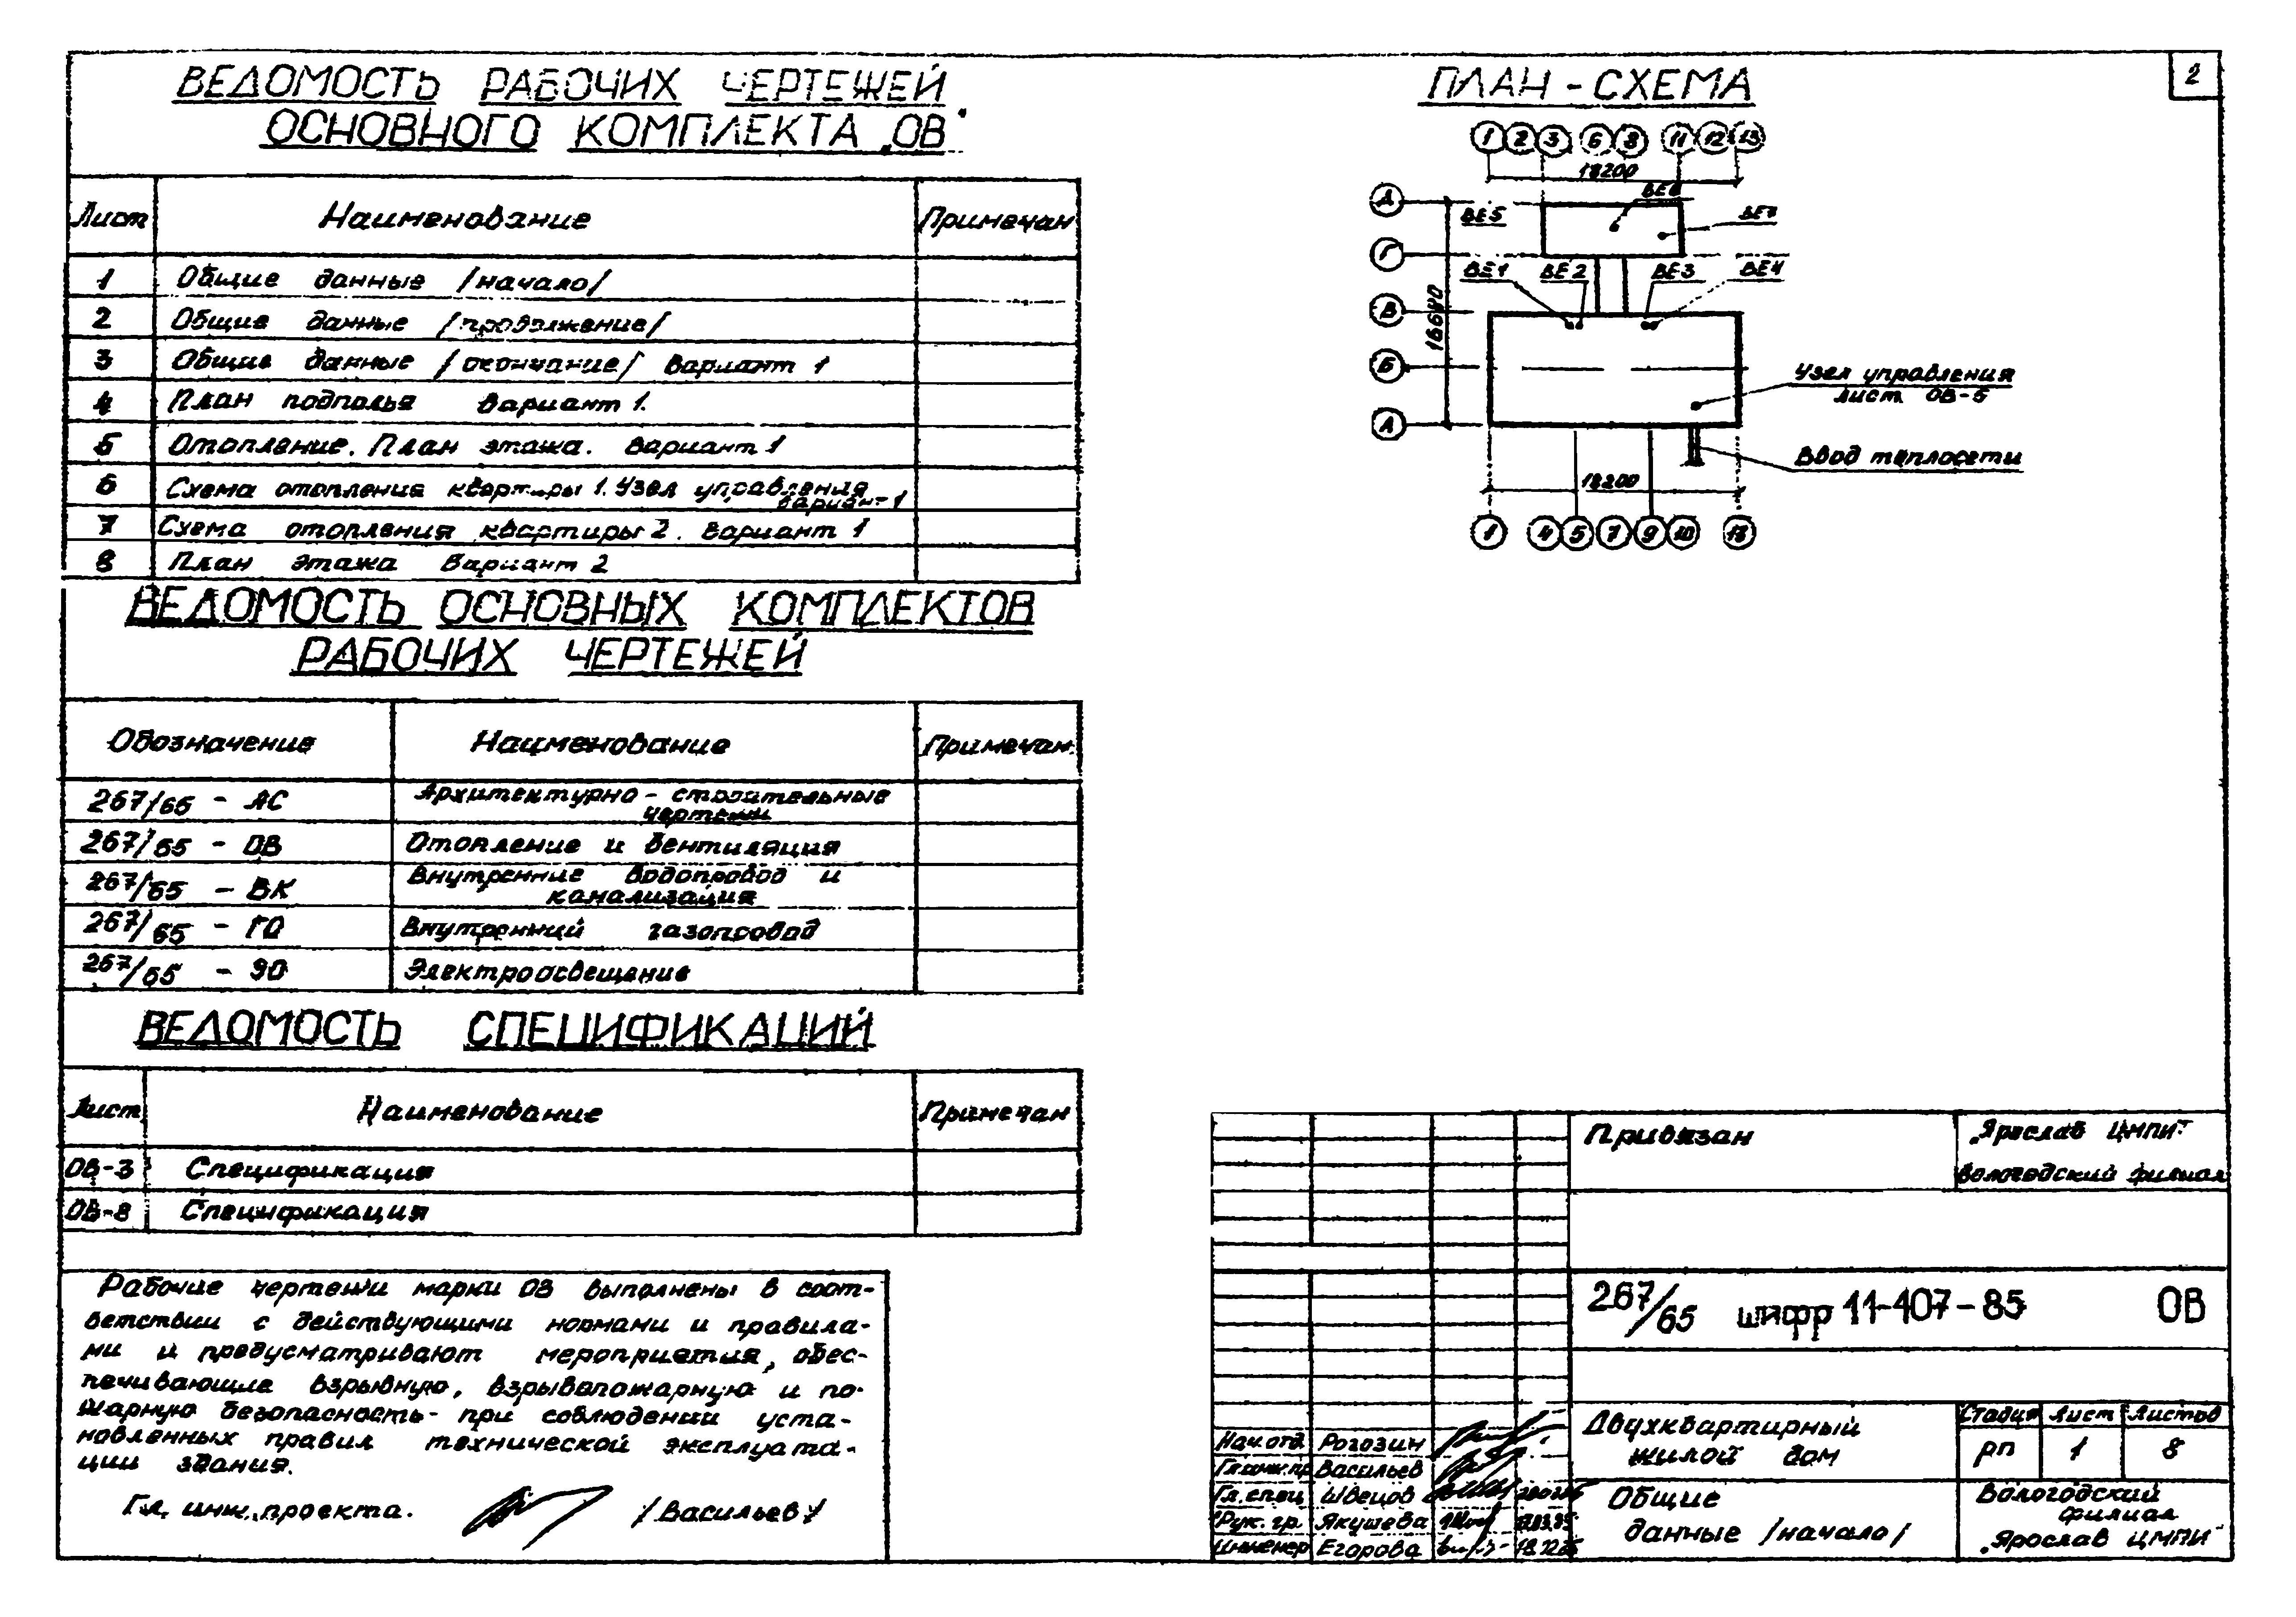 2
ВЕДОМОСТЬ РАБОЧИХ ЧЕРТЕЖЕЙ
ОСНОВНОГО КОМПЛЕКТА „ОВ"
Лист Наименование Примечан
1 Общие данные /начало/
2 Общие данные /продолжение/
3 Общие данные /окончание/ Вариант 1
4 План подполья Вариант 1.
5 Отопление. План этажа. Вариант 1
6 Схема отопления квартиры 1. Узел управления
Вариант 1
7 Схема отопления квартиры 2. Вариант 1
8 План этажа Вариант 2
ВЕДОМОСТЬ ОСНОВНЫХ КОМПЛЕКТОВ
РАБОЧИХ ЧЕРТЕЖЕЙ
Обозначение Наименование Примечан.
267/65 - АС Архитектурно-строительные
чертежи
267/65 - ОВ Отопление и вентиляция
267/65 - ВК Внутренние водопровод и
канализация
267/65 - ГО Внутренний газопровод
267/65 - ЭО Электроосвещение
ВЕДОМОСТЬ СПЕЦИФИКАЦИЙ
Лист Наименование Примечан
ОВ-3 Спецификация
ОВ-8 Спецификация
Рабочие чертежи марки ОВ выполнены в соот-
ветствии с действующими нормами и правила-
ми и предусматривают мероприятия, обес-
печивающие взрывную, взрывопожарную и по-
жарную безопасность при соблюдении уста-
новленных правил технической эксплуата-
ции здания.
Гл. инж. проекта. /Васильев/
ПЛАН-СХЕМА
1 2 3 6 8 11 12 13
18200
ВЕ6
Д
ВЕ5 ВЕ7
Г
ВЕ1 ВЕ2 ВЕ3 ВЕ4
В
16600
Б
Узел управления
лист ОВ-6
А
Ввод теплосети
18200
1 4 5 7 9 10 13
Привязан „Ярослав ЦМПИ"
Вологодский филиал
267/65 шифр 11-407-85 ОВ
Двухквартирный
жилой дом
Стадия Лист Листов
рп 1 8
Нач.отд Рогозин
Гл.инж.пр Васильев
Гл.спец Швецов
Рук.гр. Якушева
Инженер Егорова
Общие
данные /начало/
Вологодский
филиал
„Ярослав ЦМПИ"